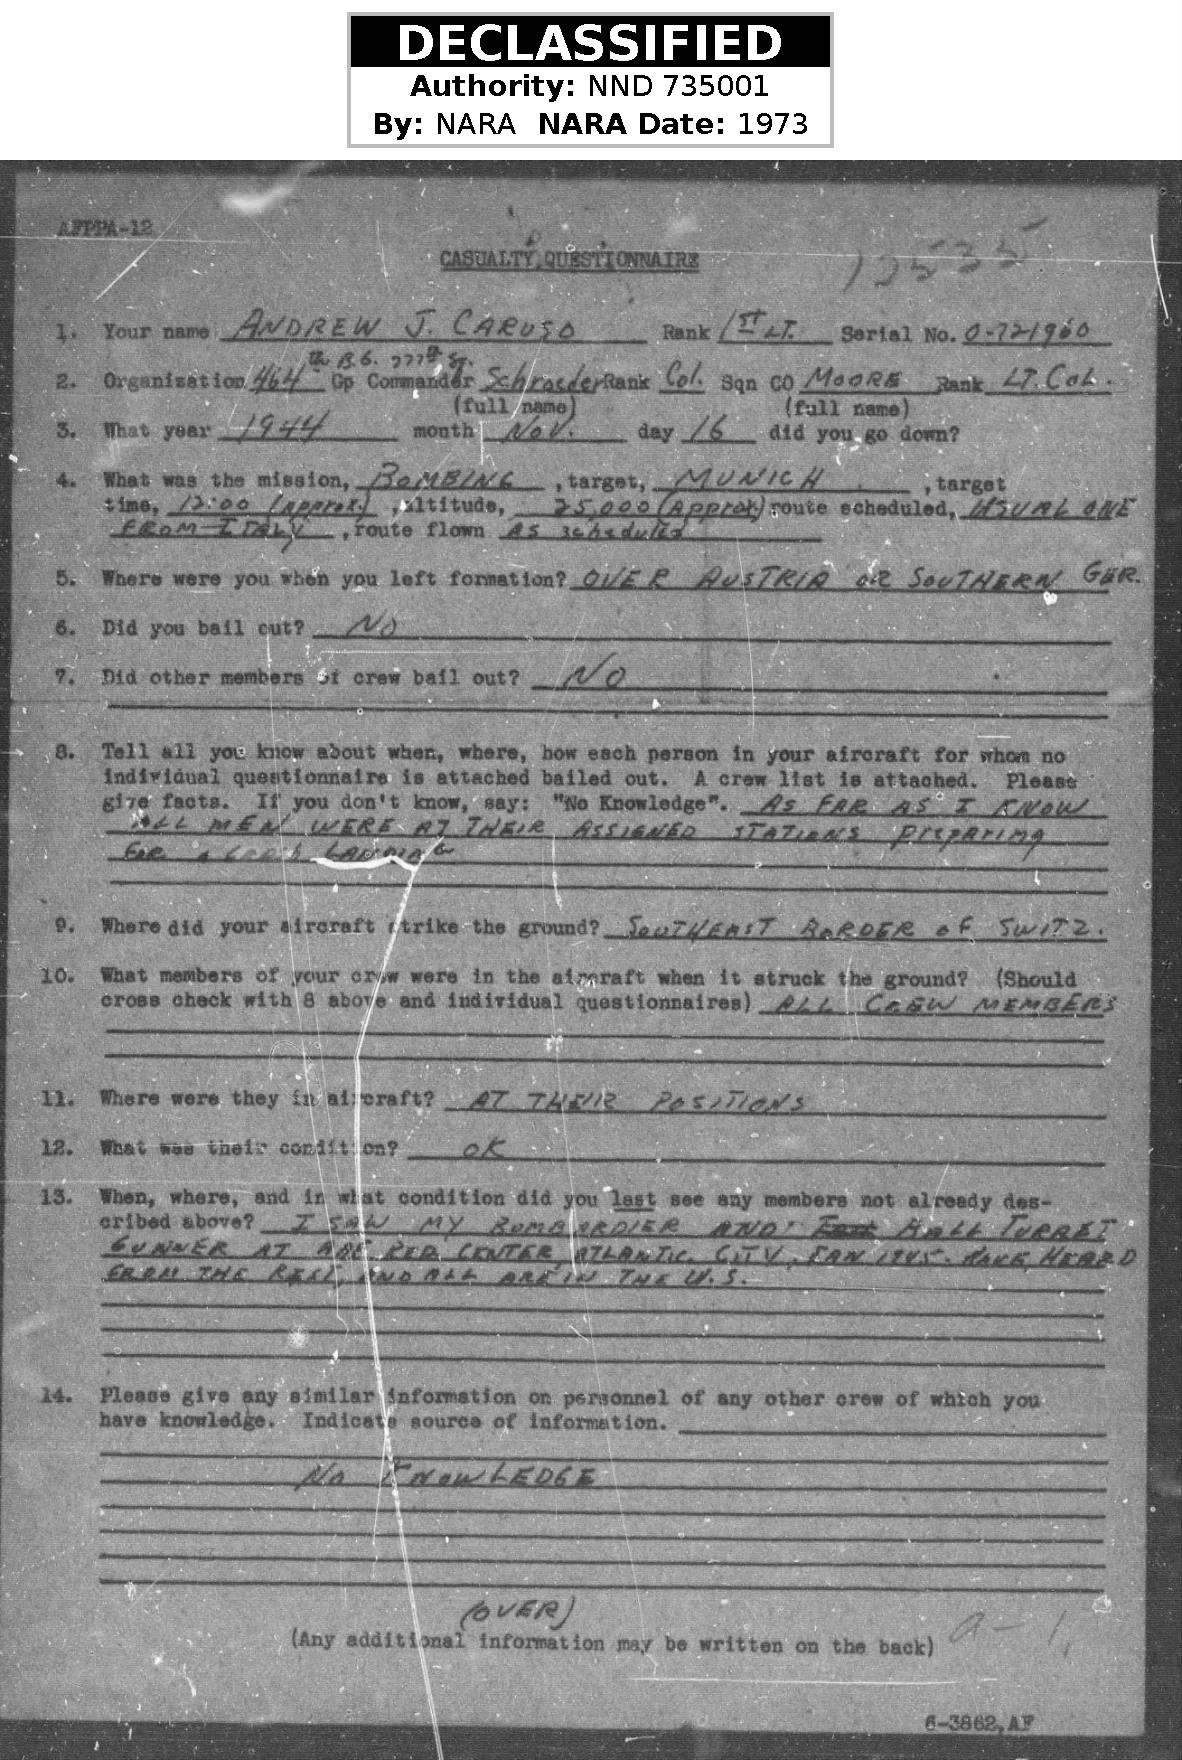 DECLASSIFIED
Authority: NND 735001
By: NARA NARA Date: 1973
AFPPA-12
CASUALTY QUESTIONNAIRE
12535
1. Your name ANDREW J. CARUSO Rank 1ST LT. Serial No. 0-721960
th B.G. 777th Sq.
2. Organization 464 Gp Commander Schroeder Rank Col. Sqn CO MOORE Rank LT. COL.
(full name) (full name)
3. What year 1944 month NOV. day 16 did you go down?
4. What was the mission, BOMBING , target, MUNICH , target
time, 12:00 (approx.) , altitude, 25,000 (Approx) route scheduled, USUAL ONE
FROM ITALY , route flown AS scheduled
5. Where were you when you left formation? OVER AUSTRIA OR SOUTHERN GER.
6. Did you bail out? NO
7. Did other members of crew bail out? NO
8. Tell all you know about when, where, how each person in your aircraft for whom no
individual questionnaire is attached bailed out. A crew list is attached. Please
give facts. If you don't know, say: "No Knowledge". AS FAR AS I KNOW
ALL MEN WERE AT THEIR ASSIGNED STATIONS preparing
FOR A LANDING
9. Where did your aircraft strike the ground? SOUTHEAST BORDER OF SWITZ.
10. What members of your crew were in the aircraft when it struck the ground? (Should
cross check with 8 above and individual questionnaires) ALL CREW MEMBERS
11. Where were they in aircraft? AT THEIR POSITIONS
12. What was their condition? OK
13. When, where, and in what condition did you last see any members not already des-
cribed above? I SAW MY BOMBARDIER AND BALL TURRET
GUNNER AT RED. CENTER, ATLANTIC CITY, JAN 1945. HAVE HEARD
FROM THE REST, AND ALL ARE IN THE U.S.
14. Please give any similar information on personnel of any other crew of which you
have knowledge. Indicate source of information.
NO KNOWLEDGE
(OVER)
(Any additional information may be written on the back)
a-1,
6-3862, AF